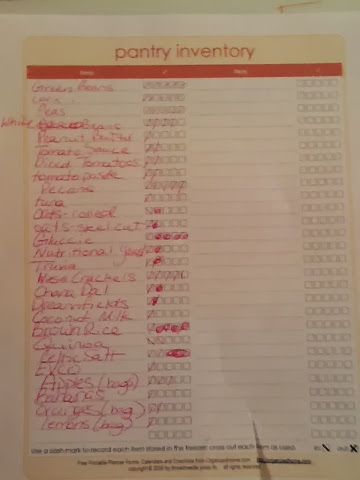 pantry inventory
Item ✓ Item ✓
Green Beans
Corn
Peas
White Beans
Peanut Butter
Tomato Sauce
Diced Tomatoes
tomato paste
Pecans
tuna
Oats-
oats-steel cut
Nutritional Yeast
Chana Dal
Coconut Milk
Brown Rice
Quinoa
Celtic Salt
EVCO
Apples (bags)
Bananas
(bag)
lemons (bag)
Use a slash mark to record each item stored in the freezer; cross out each item as used. In Out
Free Printable Planner Forms, Calendars and Checklists from Organizedhome.com
copyright © all rights reserved